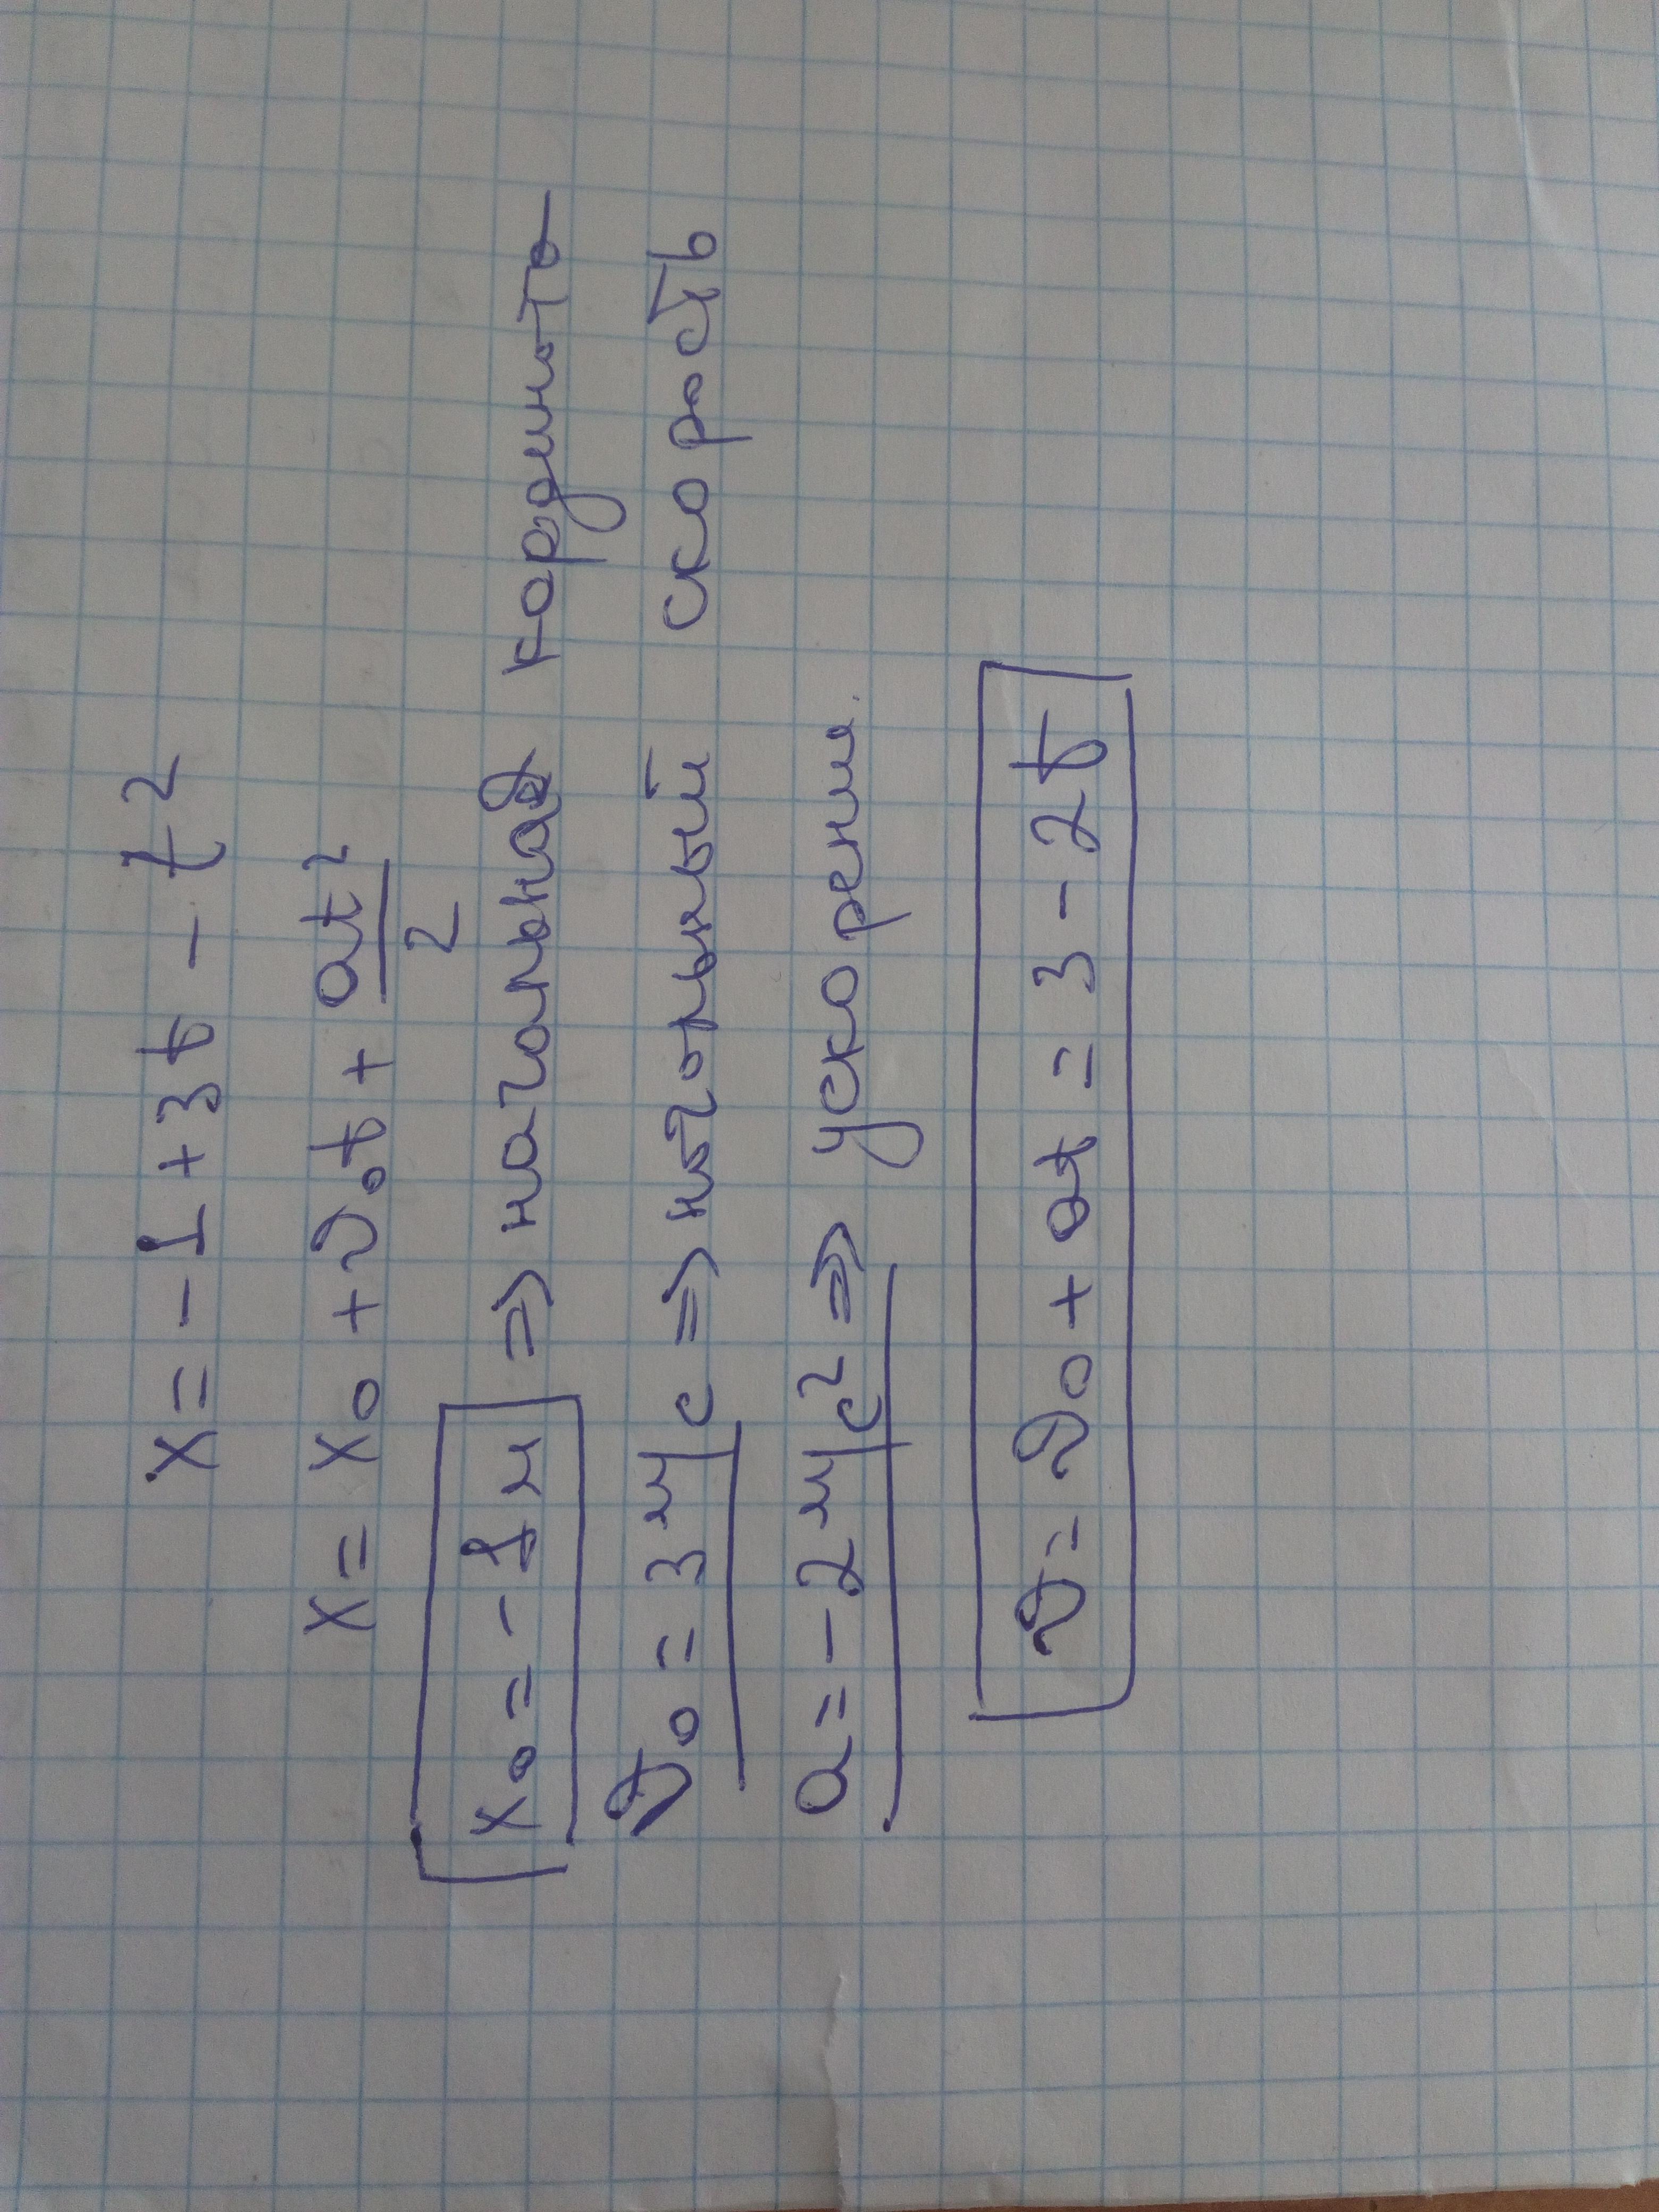 x = -1 + 3t - t²
x = x₀ + v₀t + at²/2
x₀ = -1 м => начальная кордината
v₀ = 3 м/с => начальный скорость
a = -2 м/с² => ускорение.
v = v₀ + at = 3 - 2t